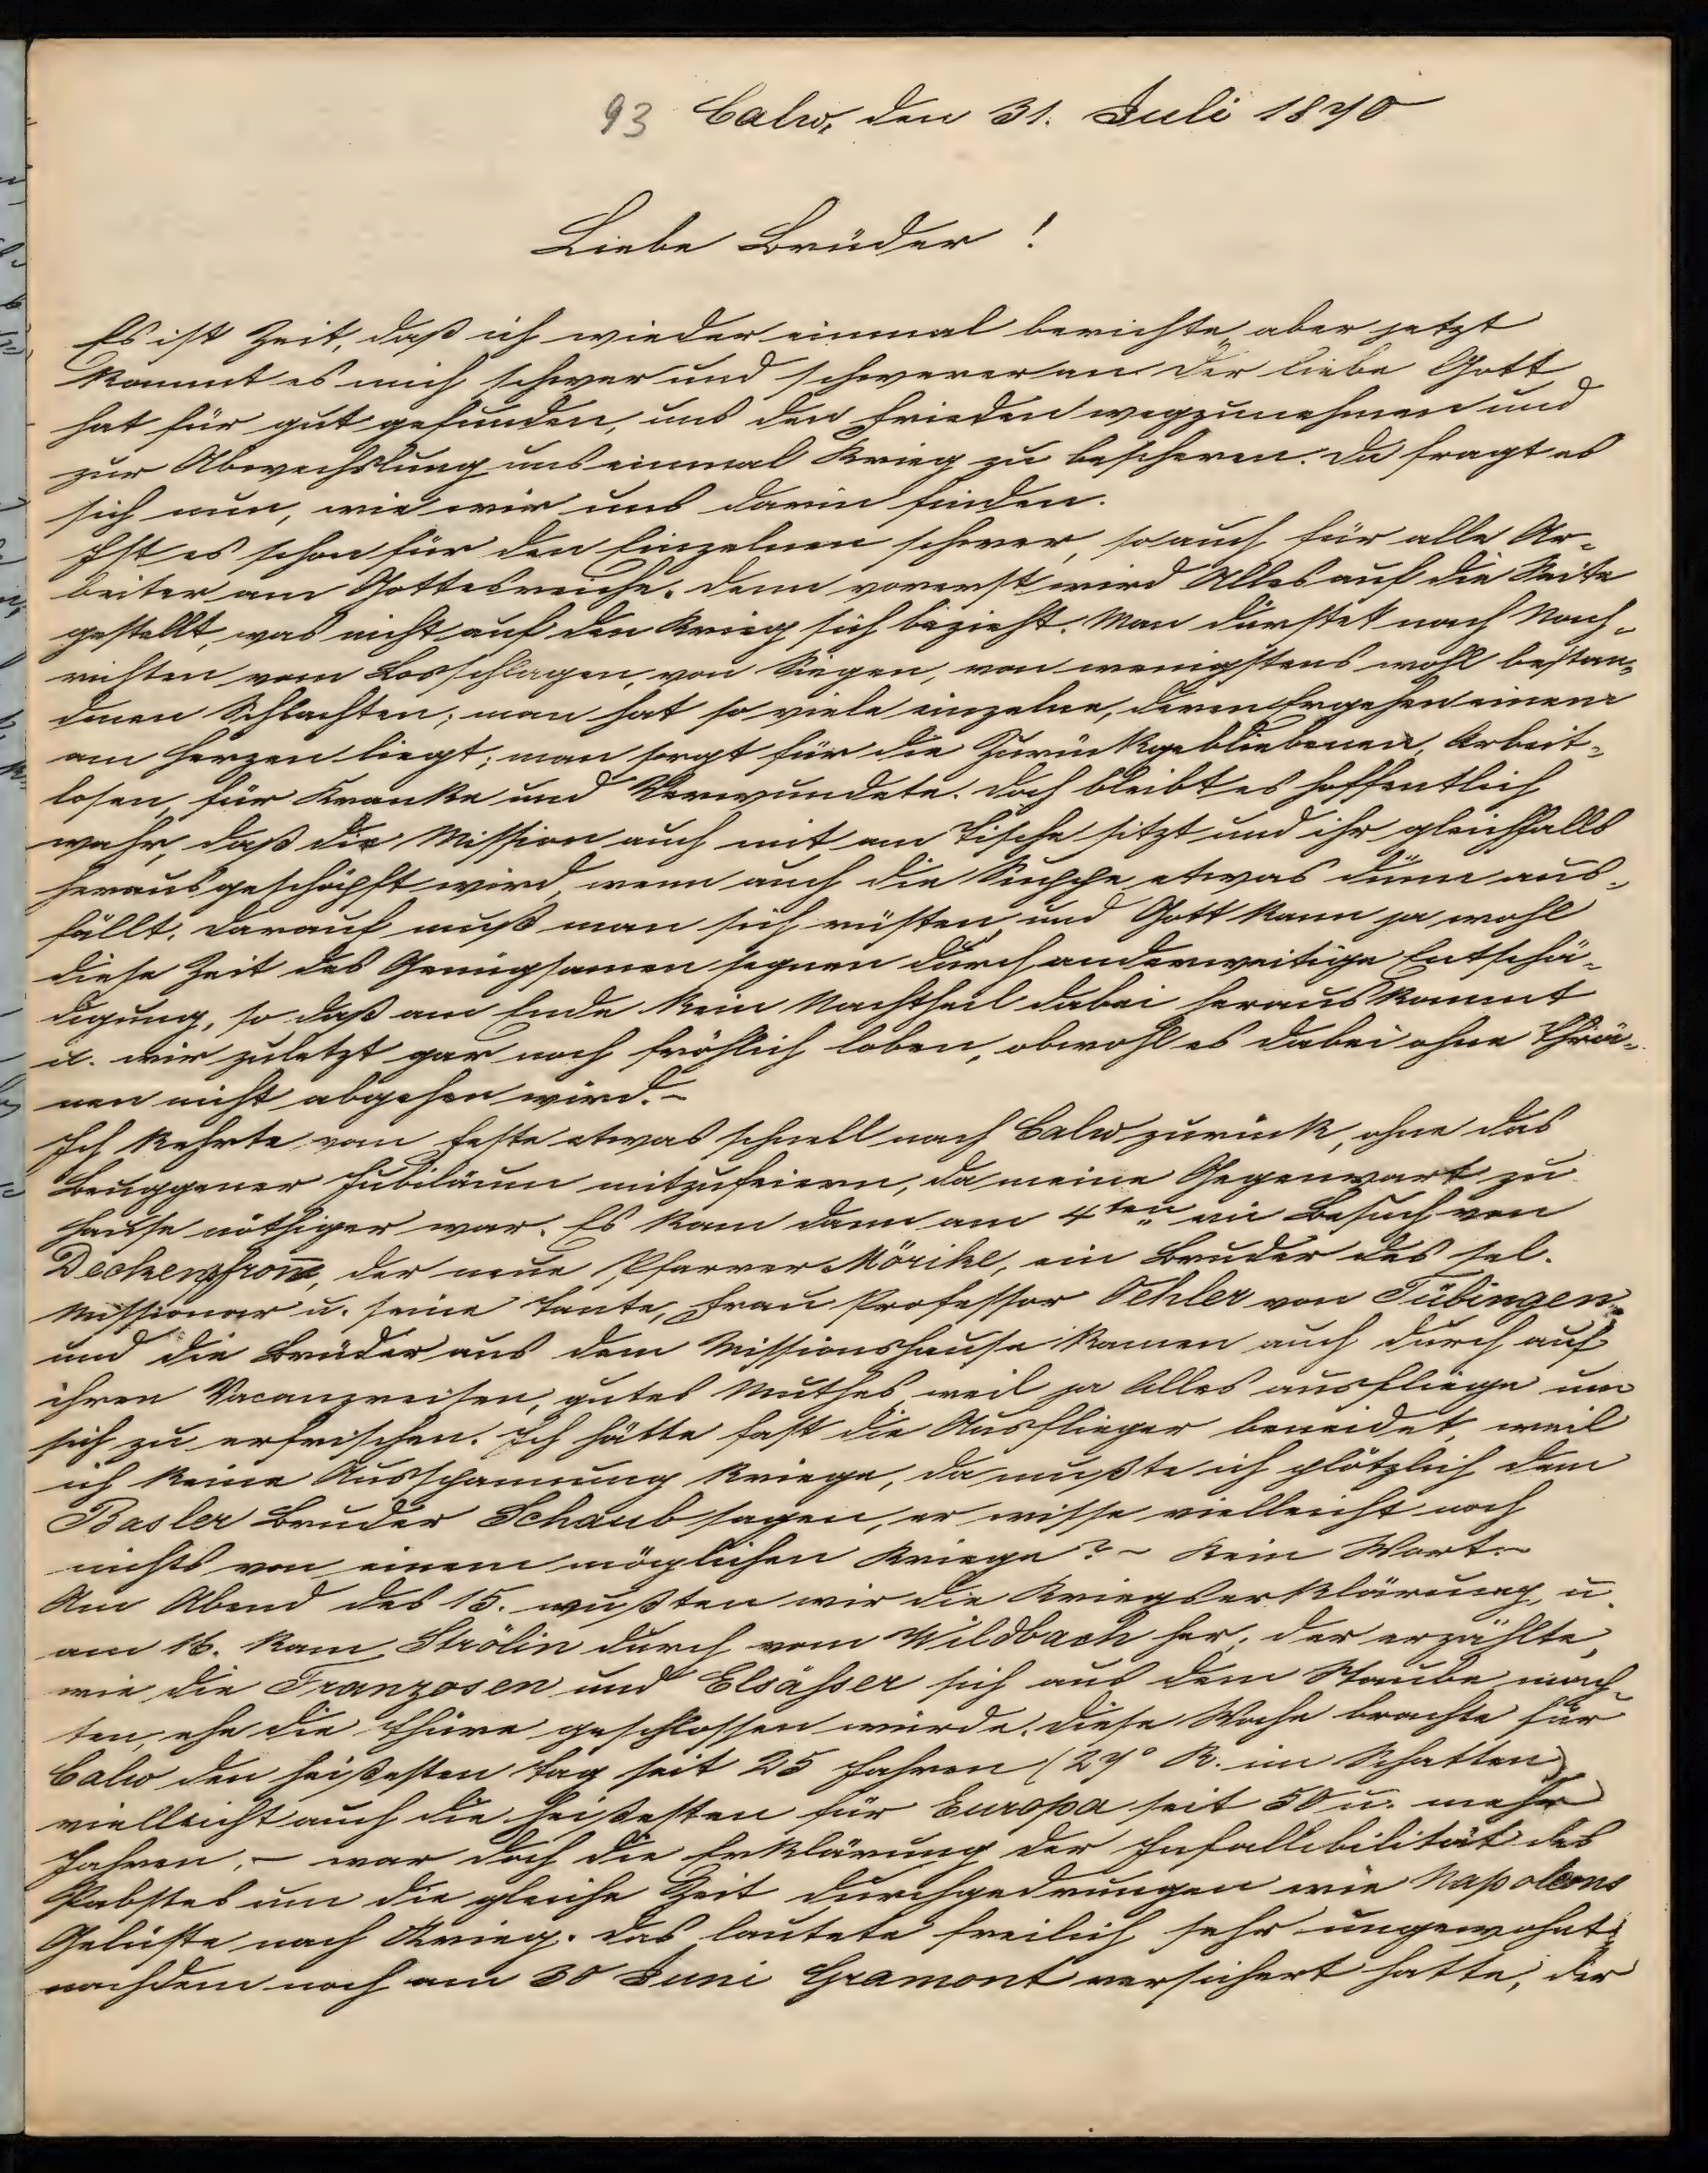 93 Calw, den 31. Juli 1870
Liebe Brüder!
Es ist Zeit, daß ich wieder einmal berichte, aber jetzt
kommt es mich schwer und schwerer an. Der liebe Gott
hat für gut gefunden, uns den Frieden wegzunehmen und
zur Abwechslung uns einmal Krieg zu bescheren. Da fragt es
sich nun, wie wir uns darin finden.
Ist es schon für den Einzelnen schwer, so auch für alle Ar-
beiter am Gottesreiche. Denn vorerst wird Alles auf die Seite
gestellt, was nicht auf den Krieg sich bezieht. Man dürstet nach Nach-
richten vom Losschlagen, von Siegen, von wenigstens wohl bestan-
denen Schlachten; man hat so viele einzelne, deren Ergehen einem
am Herzen liegt; man sorgt für die Zurückgebliebenen, Arbeit-
losen, für Kranke und Verwundete. Doch bleibt es hoffentlich
wahr, daß die Mission auch mit am Tische sitzt und ihr gleichfalls
herausgeschöpft wird, wenn auch die Suppe etwas dünn aus-
fällt. Darauf muß man sich rüsten, und Gott kann ja wohl
diese Zeit des Genügsamen segnen durch anderweitige Entschä-
digung, so daß am Ende kein Nachtheil dabei herauskommt
u. wir zuletzt gar noch fröhlich loben, obwohl es dabei ohne Thrä-
nen nicht abgehen wird. -
Ich kehrte vom Feste etwas schnell nach Calw zurück, ohne das
Beuggener Jubiläum mitzufeiern, da meine Gegenwart zu
Hause nöthiger war. Es kam dann am 4ten ein Besuch von
Deckenpfron̅, der neue Pfarrer Mörike, ein Bruder des sel.
Missionar u. seine Tante, Frau Professor Oehler von Tübingen,
und die Brüder aus dem Missionshause kamen auch durch auf
ihren Vacanzreisen, gutes Muthes, weil ja Alles ausfliege um
sich zu erfrischen. Ich hätte fast die Ausflieger beneidet, weil
ich keine Ausspannung kriege, da mußte ich plötzlich dem
Basler Bruder Schaub sagen, er wisse vielleicht noch
nichts von einem möglichen Kriege? - Kein Wort. -
Am Abend des 15. wußten wir die Kriegserklärung, u.
am 16. kam Strölin durch vom Wildbach her; der erzählte,
wie die Franzosen und Elsäßer sich aus dem Staube mach-
ten, ehe die Thüre geschlossen würde. Diese Woche brachte für
Calw den heißesten Tag seit 25 Jahren (27° R. im Schatten)
vielleicht auch die heißesten für Europa seit 50 u. mehr
Jahren, - war doch die Erklärung der Infallibilität des
Pabstes um die gleiche Zeit durchgedrungen wie Napoleons
Gelüste nach Krieg. Das lautete freilich sehr ungewohnt,
nachdem noch am 30 Juni Gramont versichert hatte, der